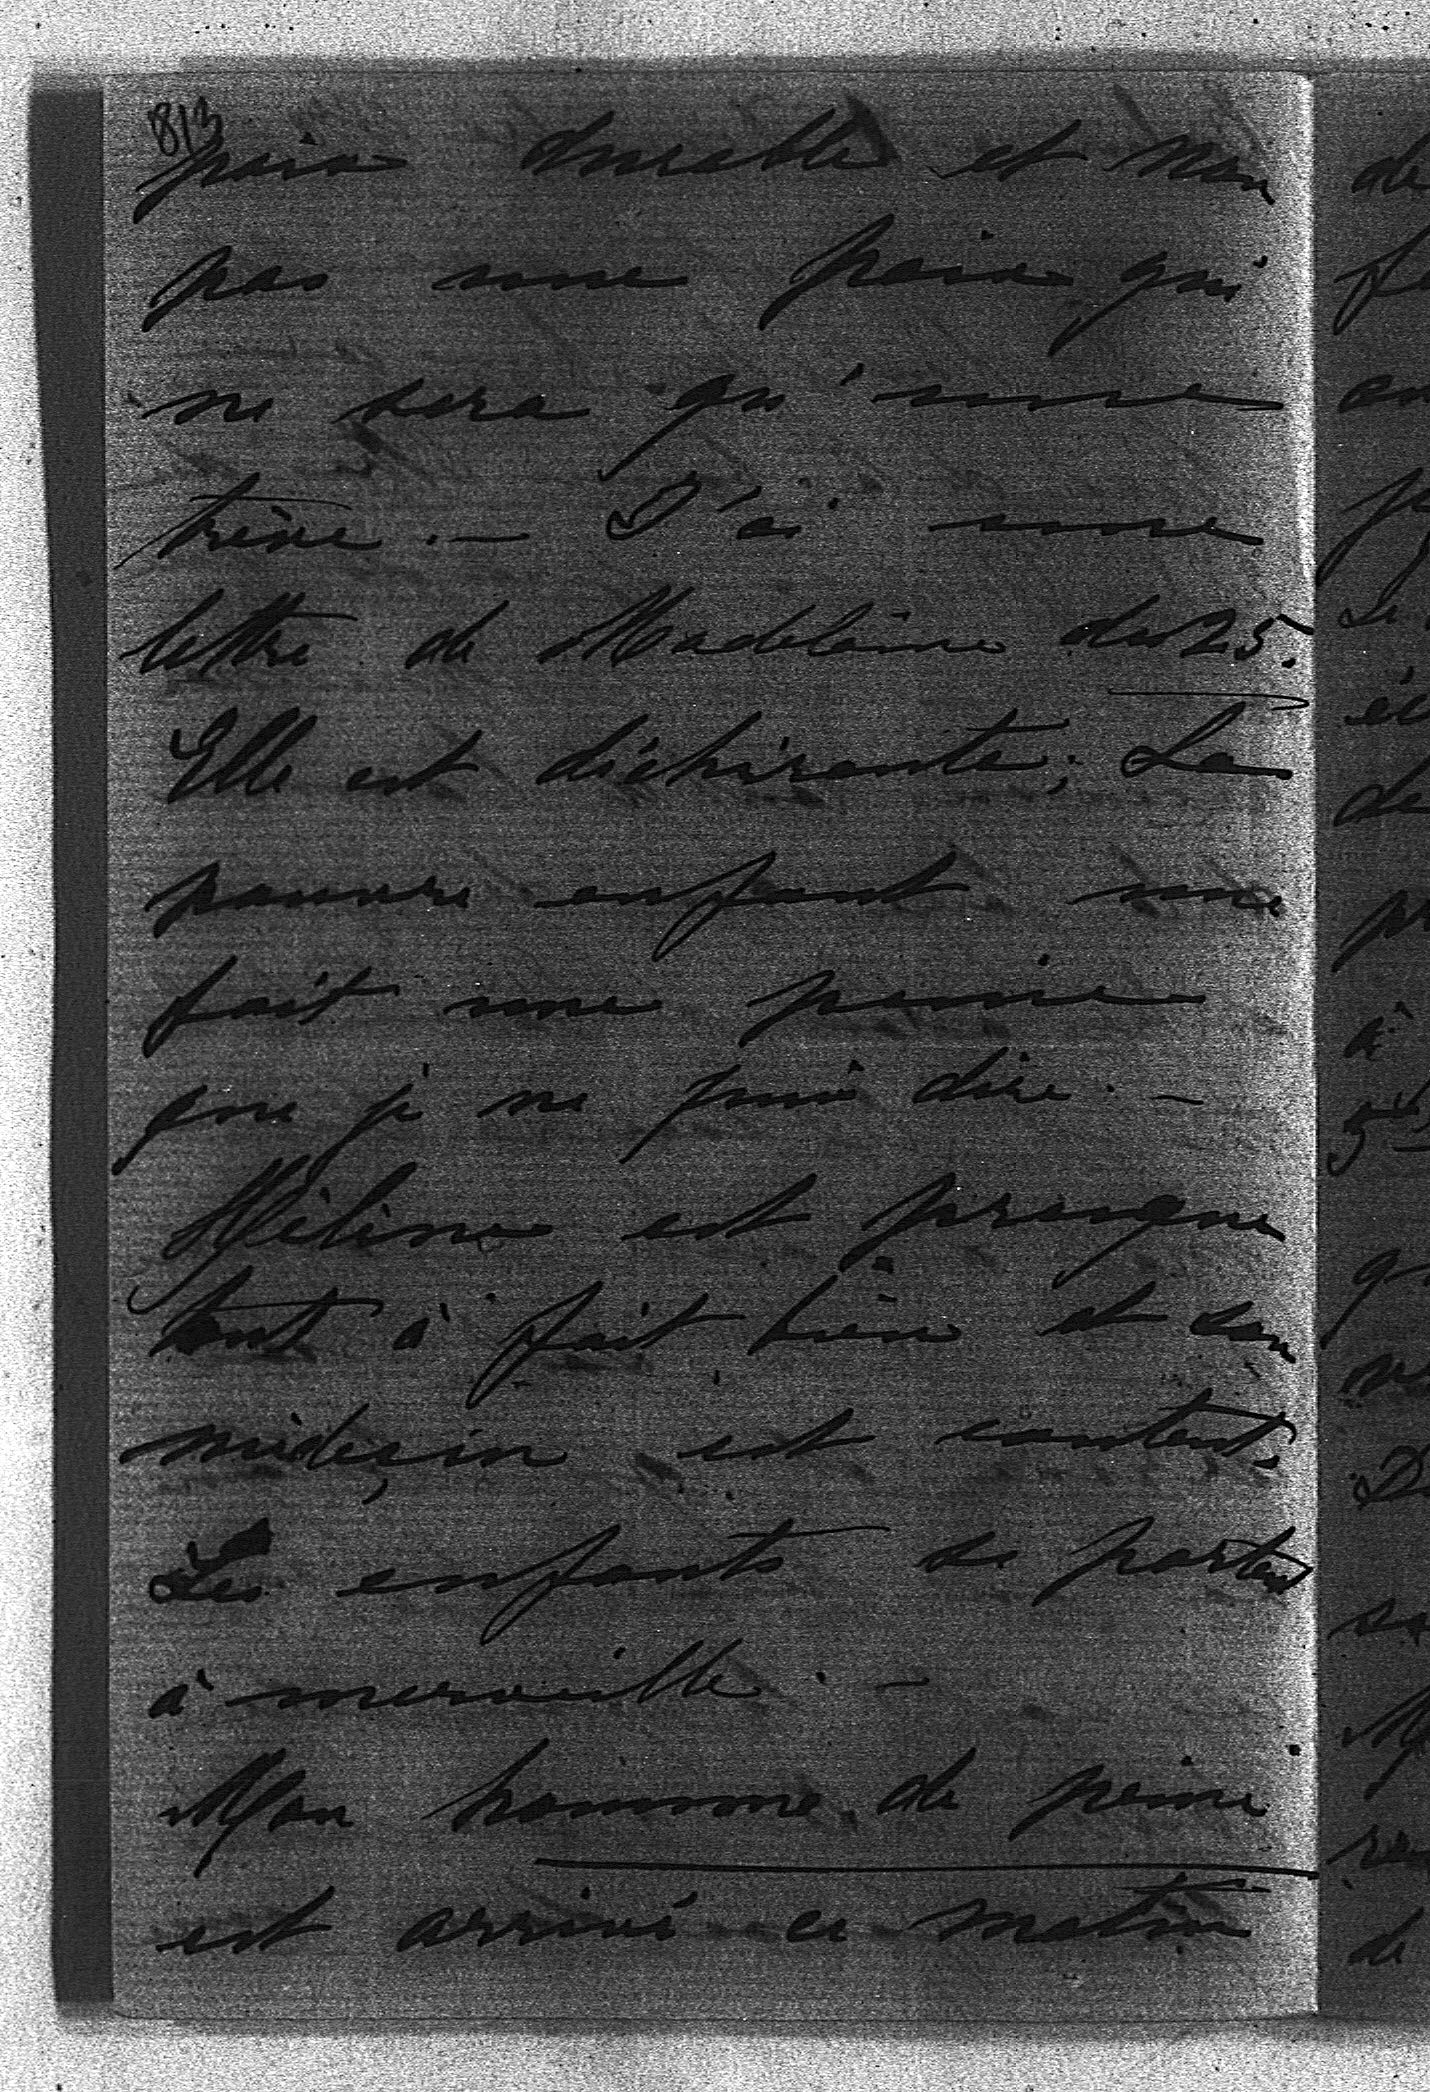 813
paix durable et non
pas une paix qui
ne sera qu'une
trève. — J'ai une
lettre de Madeleine du 25.
Elle est déchirante; La
pauvre enfant me
fait une peine
que je ne puis dire. —
Hélène est presque
tout à fait bien et son
médecin est content.
Les enfants se portent
à merveille. —
Mon homme de peine
est arrivé ce matin